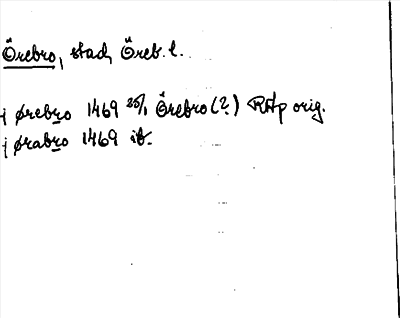 Örebro, stad, Öreb. l.
j ørebro 1469 25/1 Örebro (?) RAp orig.
j ørabro 1469 ib.